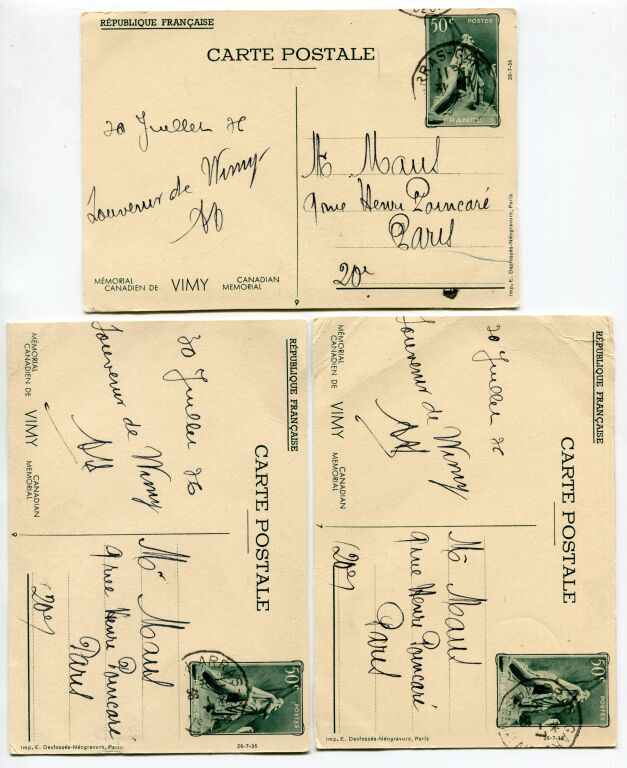 RÉPUBLIQUE FRANÇAISE
CARTE POSTALE
50c POSTES
FRANCE
ARRAS-GARE
26-7-36
30 Juillet 36
Souvenir de Vimy
Mr Maus
9 rue Henri Poincaré
Paris
20e
MÉMORIAL CANADIEN DE VIMY CANADIAN MEMORIAL
9
Imp. E. Desfossés-Néogravure, Paris
RÉPUBLIQUE FRANÇAISE
CARTE POSTALE
30 Juillet 36
Souvenir de Vimy
MÉMORIAL CANADIEN DE VIMY CANADIAN MEMORIAL
9
Mr Maus
9 rue Henri Poincaré
Paris
(20e)
50c POSTES
ARRAS
Imp. E. Desfossés-Néogravure, Paris
26-7-36
RÉPUBLIQUE FRANÇAISE
CARTE POSTALE
30 Juillet 36
Souvenir de Vimy
MÉMORIAL CANADIEN DE VIMY CANADIAN MEMORIAL
7
Mr Maus
9 rue Henri Poincaré
Paris
(20e)
50c POSTES
Imp. E. Desfossés-Néogravure, Paris
26-7-36